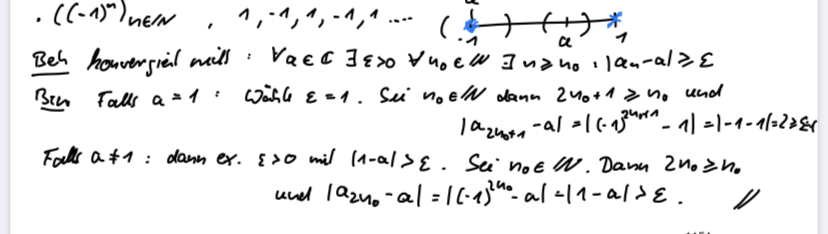 . ((-1)ⁿ)ₙ∈ℕ , 1, -1, 1, -1, 1 ....
( ) ( ) a -1 a 1
Beh konvergiert nicht : ∀a∈ℂ ∃ε>0 ∀n₀∈ℕ ∃n≥n₀ : |aₙ-a| ≥ ε
Bew Falls a = 1 : Wähle ε = 1. Sei n₀∈ℕ dann 2n₀+1 ≥ n₀ und
|a_{2n₀+1} - a| = |(-1)^{2n₀+1} - 1| = |-1-1| = 2 ≥ ε
Falls a ≠ 1 : dann ex. ε>0 mit |1-a| > ε. Sei n₀∈ℕ. Dann 2n₀ ≥ n₀
und |a_{2n₀} - a| = |(-1)^{2n₀} - a| = |1-a| > ε. //